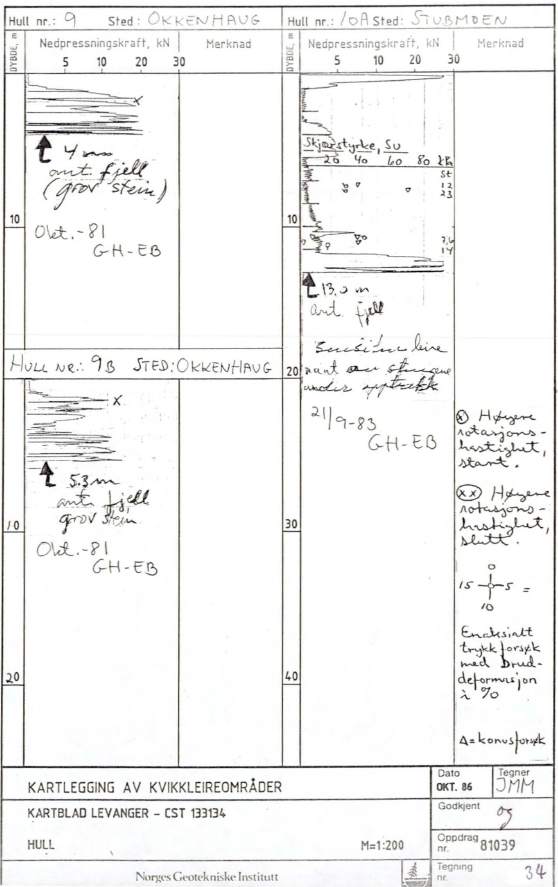 Hull nr.: 9 Sted: OKKENHAUG
DYBDE, m
Nedpressningskraft, kN
Merknad
5 10 20 30
x
4 m
ant. fjell
(grov stein)
10
Okt.-81
GH-EB
HULL NR.: 9B STED: OKKENHAUG
x
5.3 m
ant. fjell
grov stein
10
Okt.-81
GH-EB
20
Hull nr.: 10A Sted: STUBMOEN
DYBDE, m
Nedpressningskraft, kN
Merknad
5 10 20 30
Skjærstyrke, Su
20 40 60 80 kPa
St
12
23
10
7,6
14
13.0 m
ant. fjell
Sensitiv leire
20
under opptrekk
21/9-83
GH-EB
30
40
(x) Høyere
rotasjons-
hastighet,
start.
(xx) Høyere
rotasjons-
hastighet,
slutt.
0
15 5 =
10
Enaksialt
trykkforsøk
med brud-
deformasjon
i %
Δ = konusforsøk
KARTLEGGING AV KVIKKLEIREOMRÅDER
Dato
OKT. 86
Tegner
JMM
KARTBLAD LEVANGER - CST 133134
Godkjent
og
HULL M=1:200
Oppdrag nr. 81039
Norges Geotekniske Institutt
Tegning nr. 34